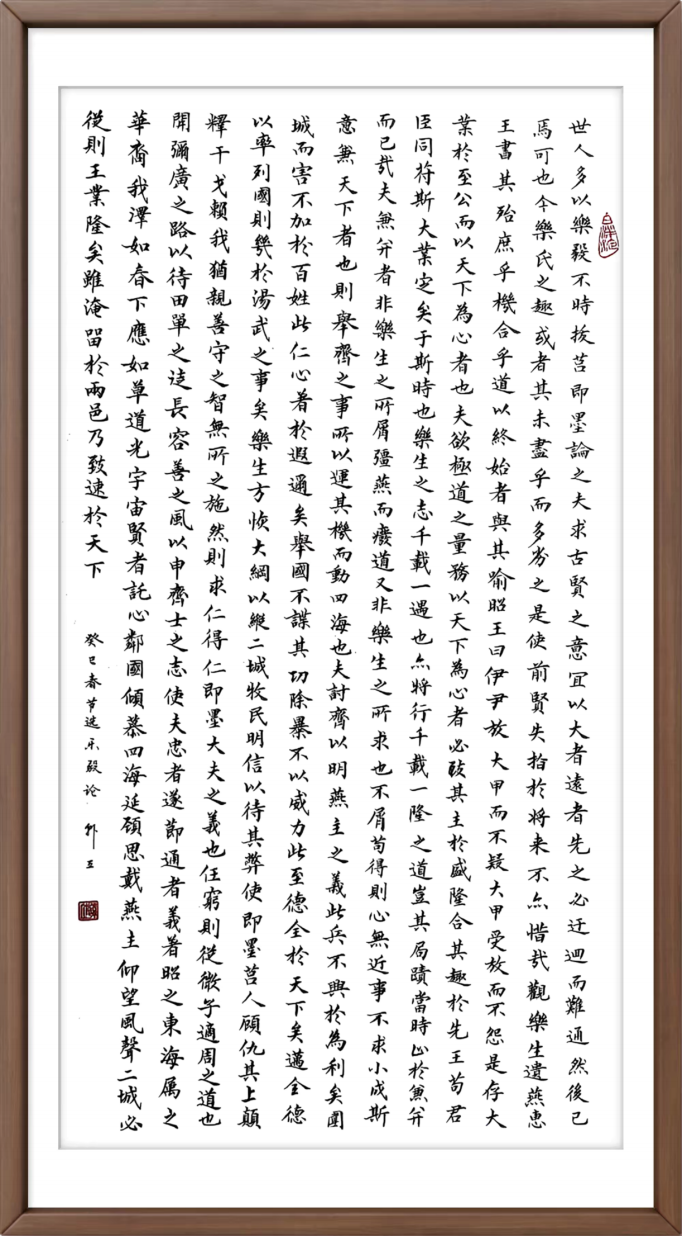 世人多以樂毅不時拔莒即墨論之夫求古賢之意冝以大者遠者先之必迂迴而難通然後已
焉可也今樂氏之趣或者其未盡乎而多劣之是使前賢失指於将来不亦惜哉觀樂生遺燕惠
王書其殆庶乎機合乎道以終始者與其喻昭王曰伊尹放大甲而不疑大甲受放而不怨是存大
業於至公而以天下為心者也夫欲極道之量務以天下為心者必致其主於盛隆合其趣於先王苟君
臣同符斯大業定矣于斯時也樂生之志千載一遇也亦将行千載一隆之道豈其局蹟當時止於兼并
而已哉夫兼并者非樂生之所屑彊燕而癈道又非樂生之所求也不屑苟得則心無近事不求小成斯
意兼天下者也則舉齊之事所以運其機而動四海也夫討齊以明燕主之義此兵不興於為利矣圍
城而害不加於百姓此仁心著於遐邇矣舉國不謀其功除暴不以威力此至德全於天下矣邁全德
以率列國則幾於湯武之事矣樂生方恢大綱以縱二城牧民明信以待其弊使即墨莒人顧仇其上願
釋干戈賴我猶親善守之智無所之施然則求仁得仁即墨大夫之義也任窮則從微子適周之道也
開彌廣之路以待田單之徒長容善之風以申齊士之志使夫忠者遂節通者義著昭之東海属之
華裔我澤如春下應如草道光宇宙賢者託心鄰國傾慕四海延頸思戴燕主仰望風聲二城必
從則王業隆矣雖淹留於兩邑乃致速於天下
癸巳春节选乐毅论